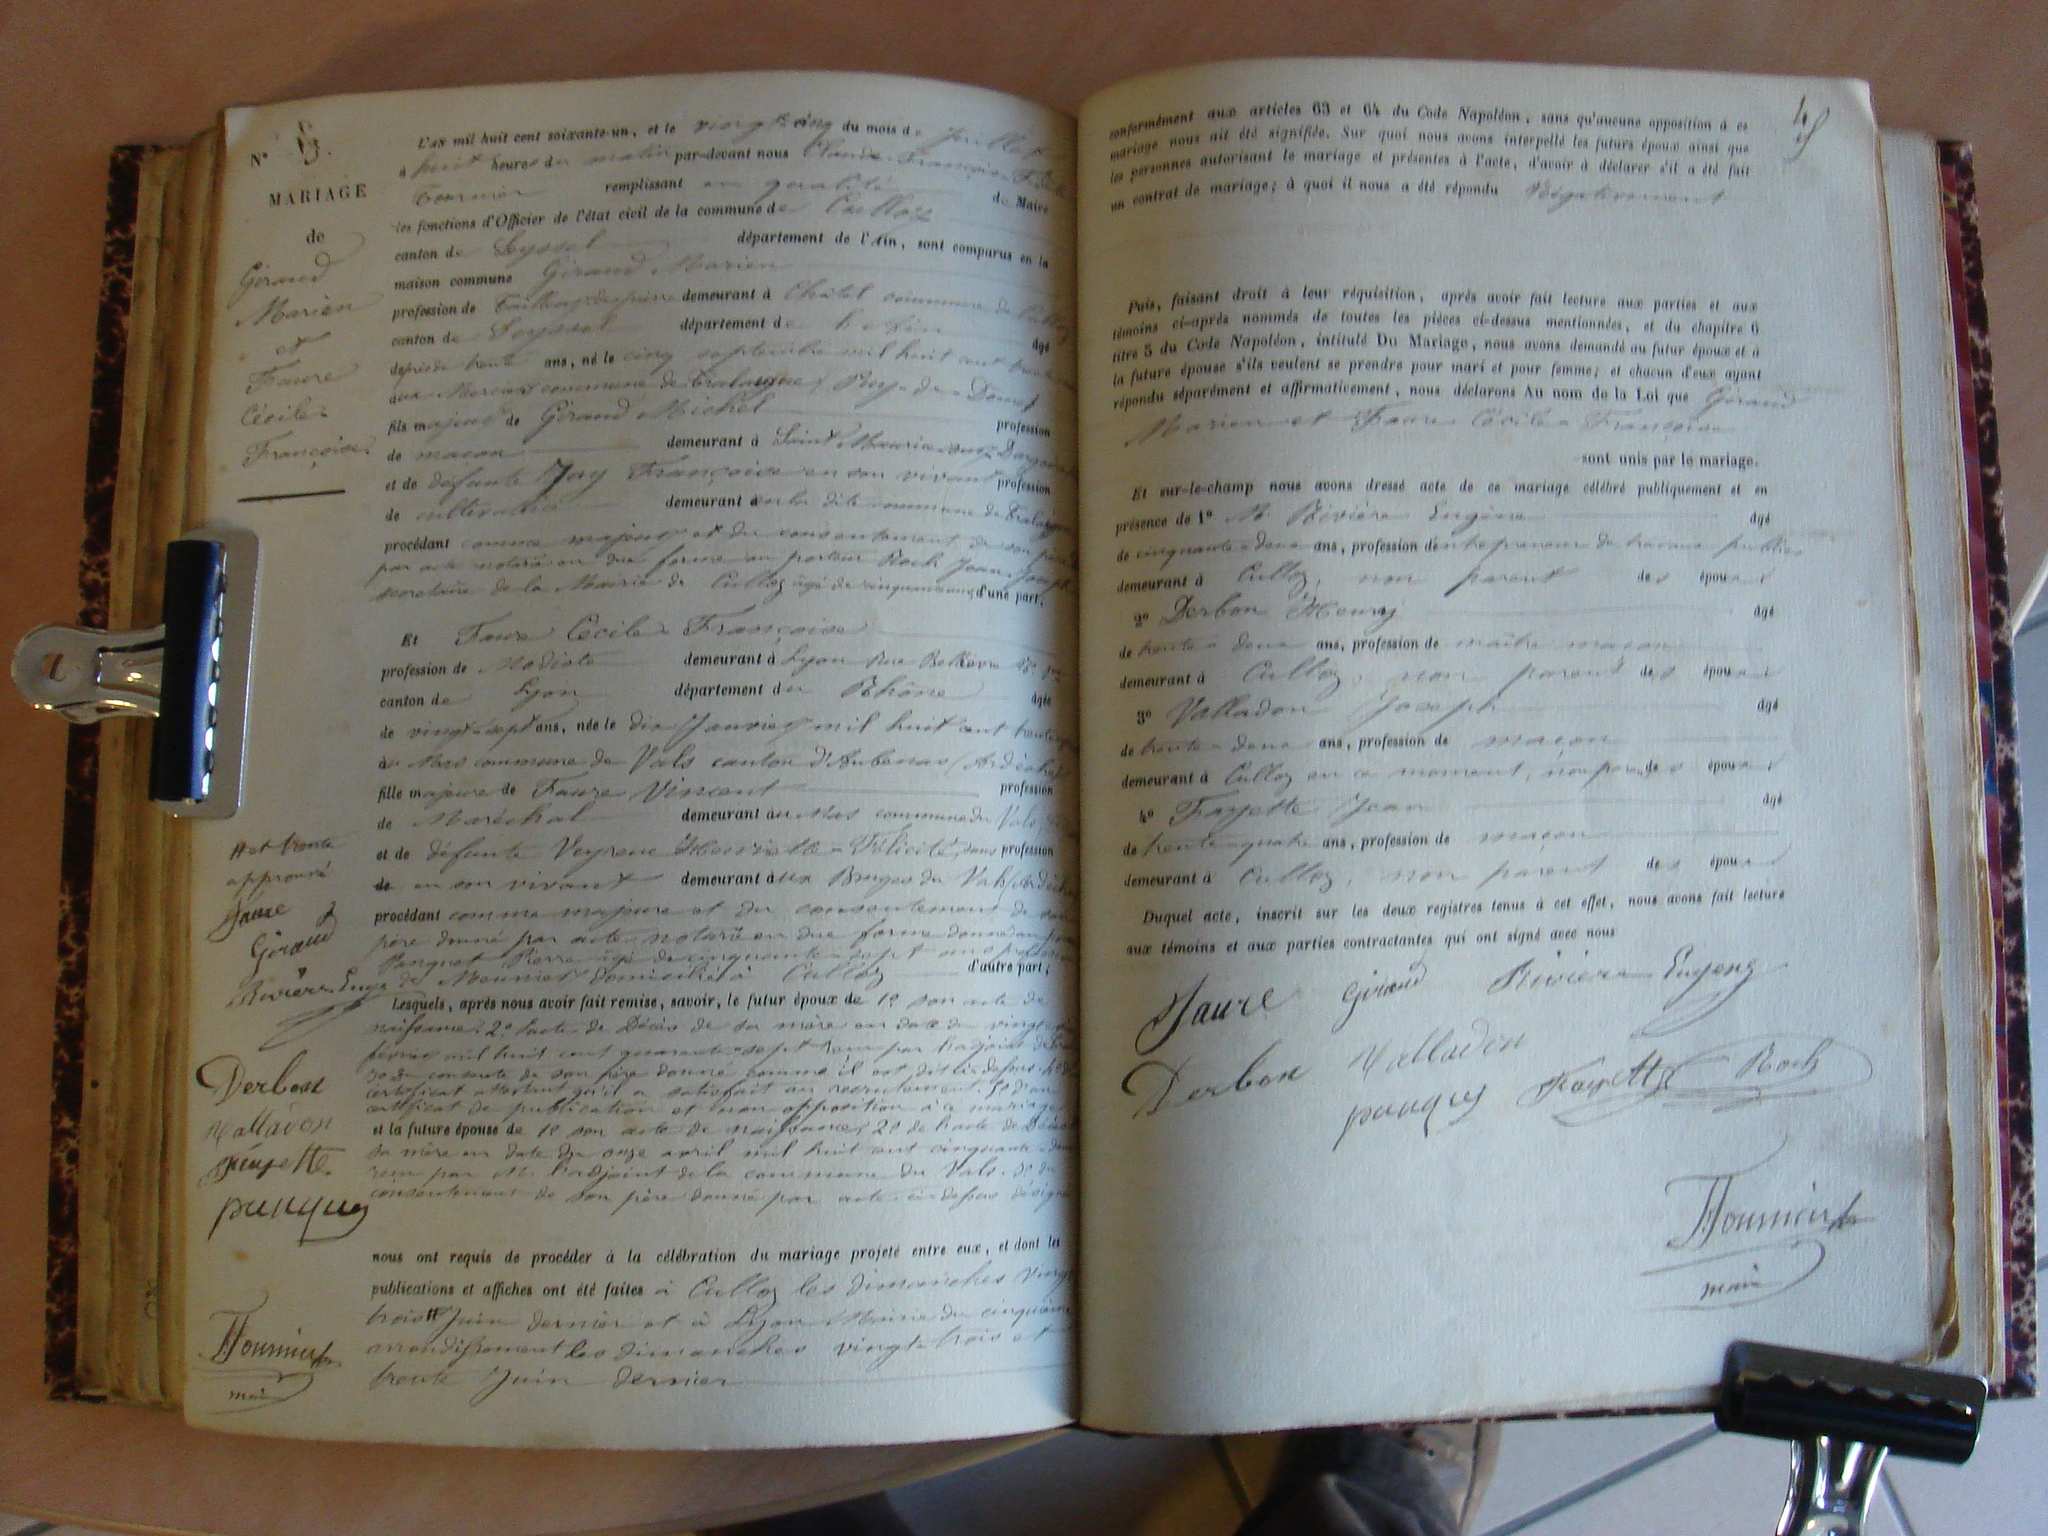 N° 6.
MARIAGE
de
Giraud
Marien
et
Faure
Cécile
Françoise
L'AN mil huit cent soixante-un, et le vingt cinq du mois de Juillet
à huit heures du matin par-devant nous Claude François
Fournier remplissant en qualité de Maire
les fonctions d'Officier de l'état civil de la commune de Culloz
canton de Seyssel département de l'Ain, sont comparus en la
maison commune Giraud Marien
profession de Tailleur de pierre demeurant à Châtel commune de Culloz
canton de Seyssel département de l'Ain âgé
de près de trente ans, né le cinq septembre mil huit cent trente
commune de (Puy-de-Dome)
fils majeur de Giraud Michel profession
de macon demeurant à Saint Maurice
et de défunte Jay Françoise en son vivant profession
de cultivatrice demeurant en la dite commune de
procédant comme majeur et du consentement de son père
par acte notarié en due forme au porteur Roch Jean Joseph
secrétaire de la Mairie de Culloz âgé de cinquante ans d'une part;
Et Faure Cécile Françoise
profession de Modiste demeurant à Lyon Rue
canton de Lyon département du Rhône âgée
de vingt-sept ans, née le dix Janvier mil huit cent trente
au Mas commune de Vals canton d'Aubenas (Ardèche)
fille majeure de Faure Vincent profession
de Maréchal demeurant au Mas commune du Vals
et de défunte Veyrenc Henriette Félicité sans profession
de en son vivant demeurant aux du Vals (Ardèche)
procédant comme majeure et du consentement de son
père donné par acte notarié en due forme donné au
Panquet Pierre âgé de cinquante-sept ans profession
de Meunier domicilié à Culloz d'autre part;
Lesquels, après nous avoir fait remise, savoir, le futur époux de 1° son acte de
naissance, 2° l'acte de Décès de sa mère en date du vingt
février mil huit cent quarante-sept par l'adjoint
3° du consente de son père donné comme il est dit ci-dessus, 4°
certificat attestant qu'il a satisfait au recrutement, 5° d'un
certificat de publication et non opposition à ce mariage
et la future épouse de 1° son acte de naissance, 2° de l'acte de Décès
sa mère en date du onze avril mil huit cent cinquante
par M. l'adjoint de la commune du Vals, 3° du
consentement de son père donné par acte ci-dessus désigné
nous ont requis de procéder à la célébration du mariage projeté entre eux, et dont les
publications et affiches ont été faites à Culloz les dimanches vingt
trois # Juin dernier et à Lyon Mairie du cinquième
arrondissement les dimanches vingt-trois et
trente Juin dernier
# et trente
approuvé
Faure
Giraud
Rivière Eug
Derbon
Valladon
Fayette
panquey
Fournier
maire
45
conformément aux articles 63 et 64 du Code Napoléon, sans qu'aucune opposition à ce
mariage nous ait été signifiée. Sur quoi nous avons interpellé les futurs époux ainsi que
les personnes autorisant le mariage et présentes à l'acte, d'avoir à déclarer s'il a été fait
un contrat de mariage; à quoi il nous a été répondu Négativement
Puis, faisant droit à leur réquisition, après avoir fait lecture aux parties et aux
témoins ci-après nommés de toutes les pièces ci-dessus mentionnées, et du chapitre 6
titre 5 du Code Napoléon, intitulé Du Mariage, nous avons demandé au futur époux et à
la future épouse s'ils veulent se prendre pour mari et pour femme; et chacun d'eux ayant
répondu séparément et affirmativement, nous déclarons Au nom de la Loi que Giraud
Marien et Faure Cécile Françoise
sont unis par le mariage.
Et sur-le-champ nous avons dressé acte de ce mariage célébré publiquement et en
présence de 1° M. Rivière Eugène âgé
de cinquante-deux ans, profession d'entrepreneur de travaux publics
demeurant à Culloz, non parent des époux
2° Derbon Henry âgé
de trente-deux ans, profession de maître macon
demeurant à Culloz, non parent des époux
3° Valladon Joseph âgé
de trente-deux ans, profession de macon
demeurant à Culloz en ce moment, non parent des époux
4° Fayette Jean âgé
de trente-quatre ans, profession de maçon
demeurant à Culloz, non parent des époux
Duquel acte, inscrit sur les deux registres tenus à cet effet, nous avons fait lecture
aux témoins et aux parties contractantes qui ont signé avec nous
Faure Giraud Rivière Eugene
Derbon Valladon
panquey Fayette Roch
Fournier
maire